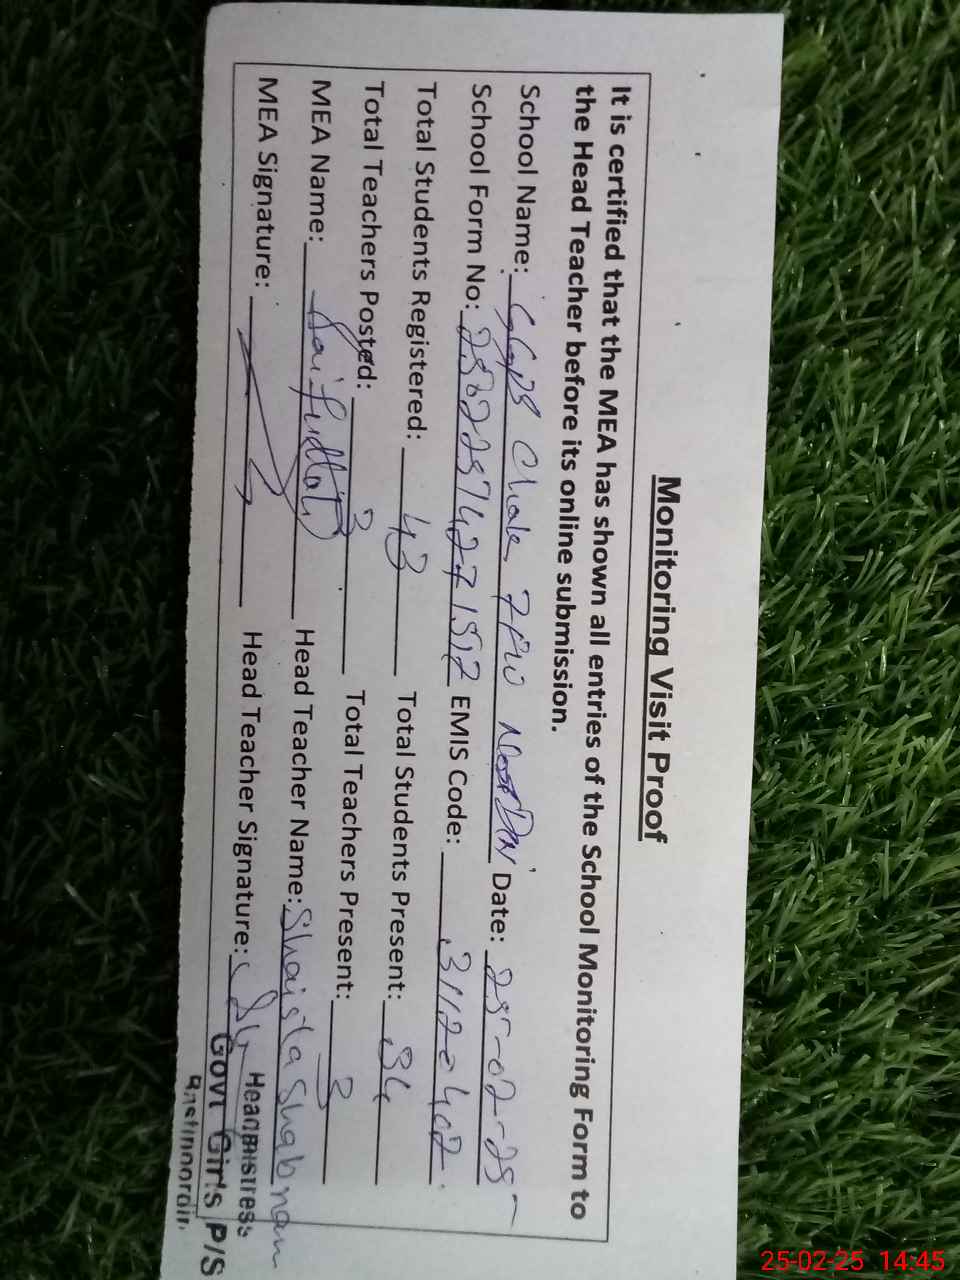 Monitoring Visit Proof
It is certified that the MEA has shown all entries of the School Monitoring Form to
the Head Teacher before its online submission.
School Name: GGPS Chak 7PW Noor Din Date: 25-02-25
School Form No: EMIS Code: 31120402
Total Students Registered: 43 Total Students Present: 34
Total Teachers Posted: 3 Total Teachers Present: 3
MEA Name: Saifullah Head Teacher Name: Shaista Shabnam
MEA Signature: Head Teacher Signature:
Headmistress
Govt Girls P/S
25-02-25 14:45